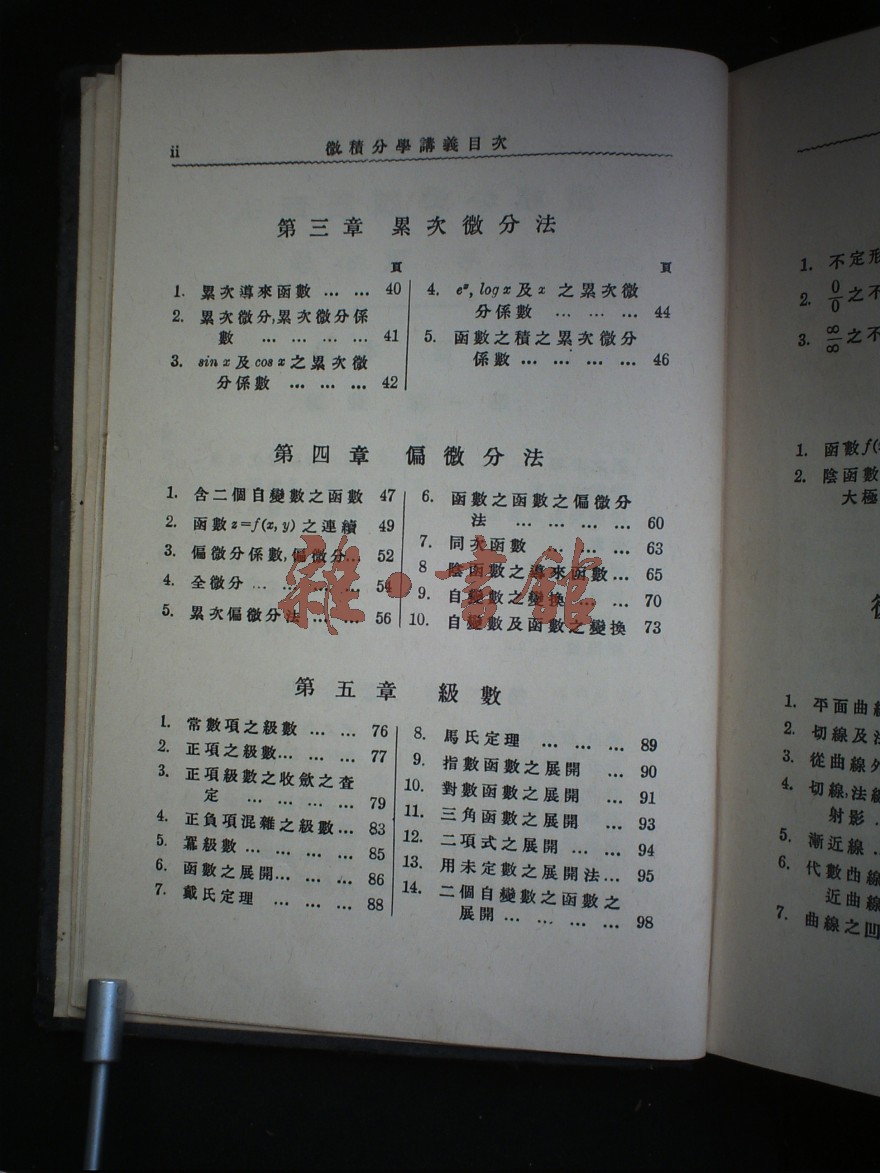 ii 微積分學講義目次
第三章 累次微分法
頁
1. 累次導來函數 … … 40
2. 累次微分,累次微分係
數 … … … … 41
3. sin x 及 cos x 之累次微
分係數 … … … 42
頁
4. eˣ, log x 及 x 之累次微
分係數 … … … 44
5. 函數之積之累次微分
係數 … … … … 46
第四章 偏微分法
1. 含二個自變數之函數 47
2. 函數 z=f(x, y) 之連續 49
3. 偏微分係數,偏微分… 52
4. 全微分 … … … … 54
5. 累次偏微分法 … … 56
6. 函數之函數之偏微分
法 … … … … 60
7. 同次函數 … … … 63
8 陰函數之導來函數… 65
9. 自變數之變換… … 70
10. 自變數及函數之變換 73
雜·書館
第五章 級數
1. 常數項之級數 … … 76
2. 正項之級數… … … 77
3. 正項級數之收斂之查
定 … … … … 79
4. 正負項混雜之級數… 83
5. 羃級數… … … … 85
6. 函數之展開… … … 86
7. 戴氏定理 … … … 88
8. 馬氏定理 … … … 89
9. 指數函數之展開 … 90
10. 對數函數之展開 … 91
11. 三角函數之展開 … 93
12. 二項式之展開 … … 94
13. 用未定數之展開法… 95
14. 二個自變數之函數之
展開 … … … … 98
1. 不定形
2. 0/0 之不
3. ∞/∞ 之不
1. 函數 f(
2. 陰函數
大極
1. 平面曲線
2. 切線及法
3. 從曲線外
4. 切線,法線
射影 .
5. 漸近線 ..
6. 代數曲線
近曲線
7. 曲線之凹